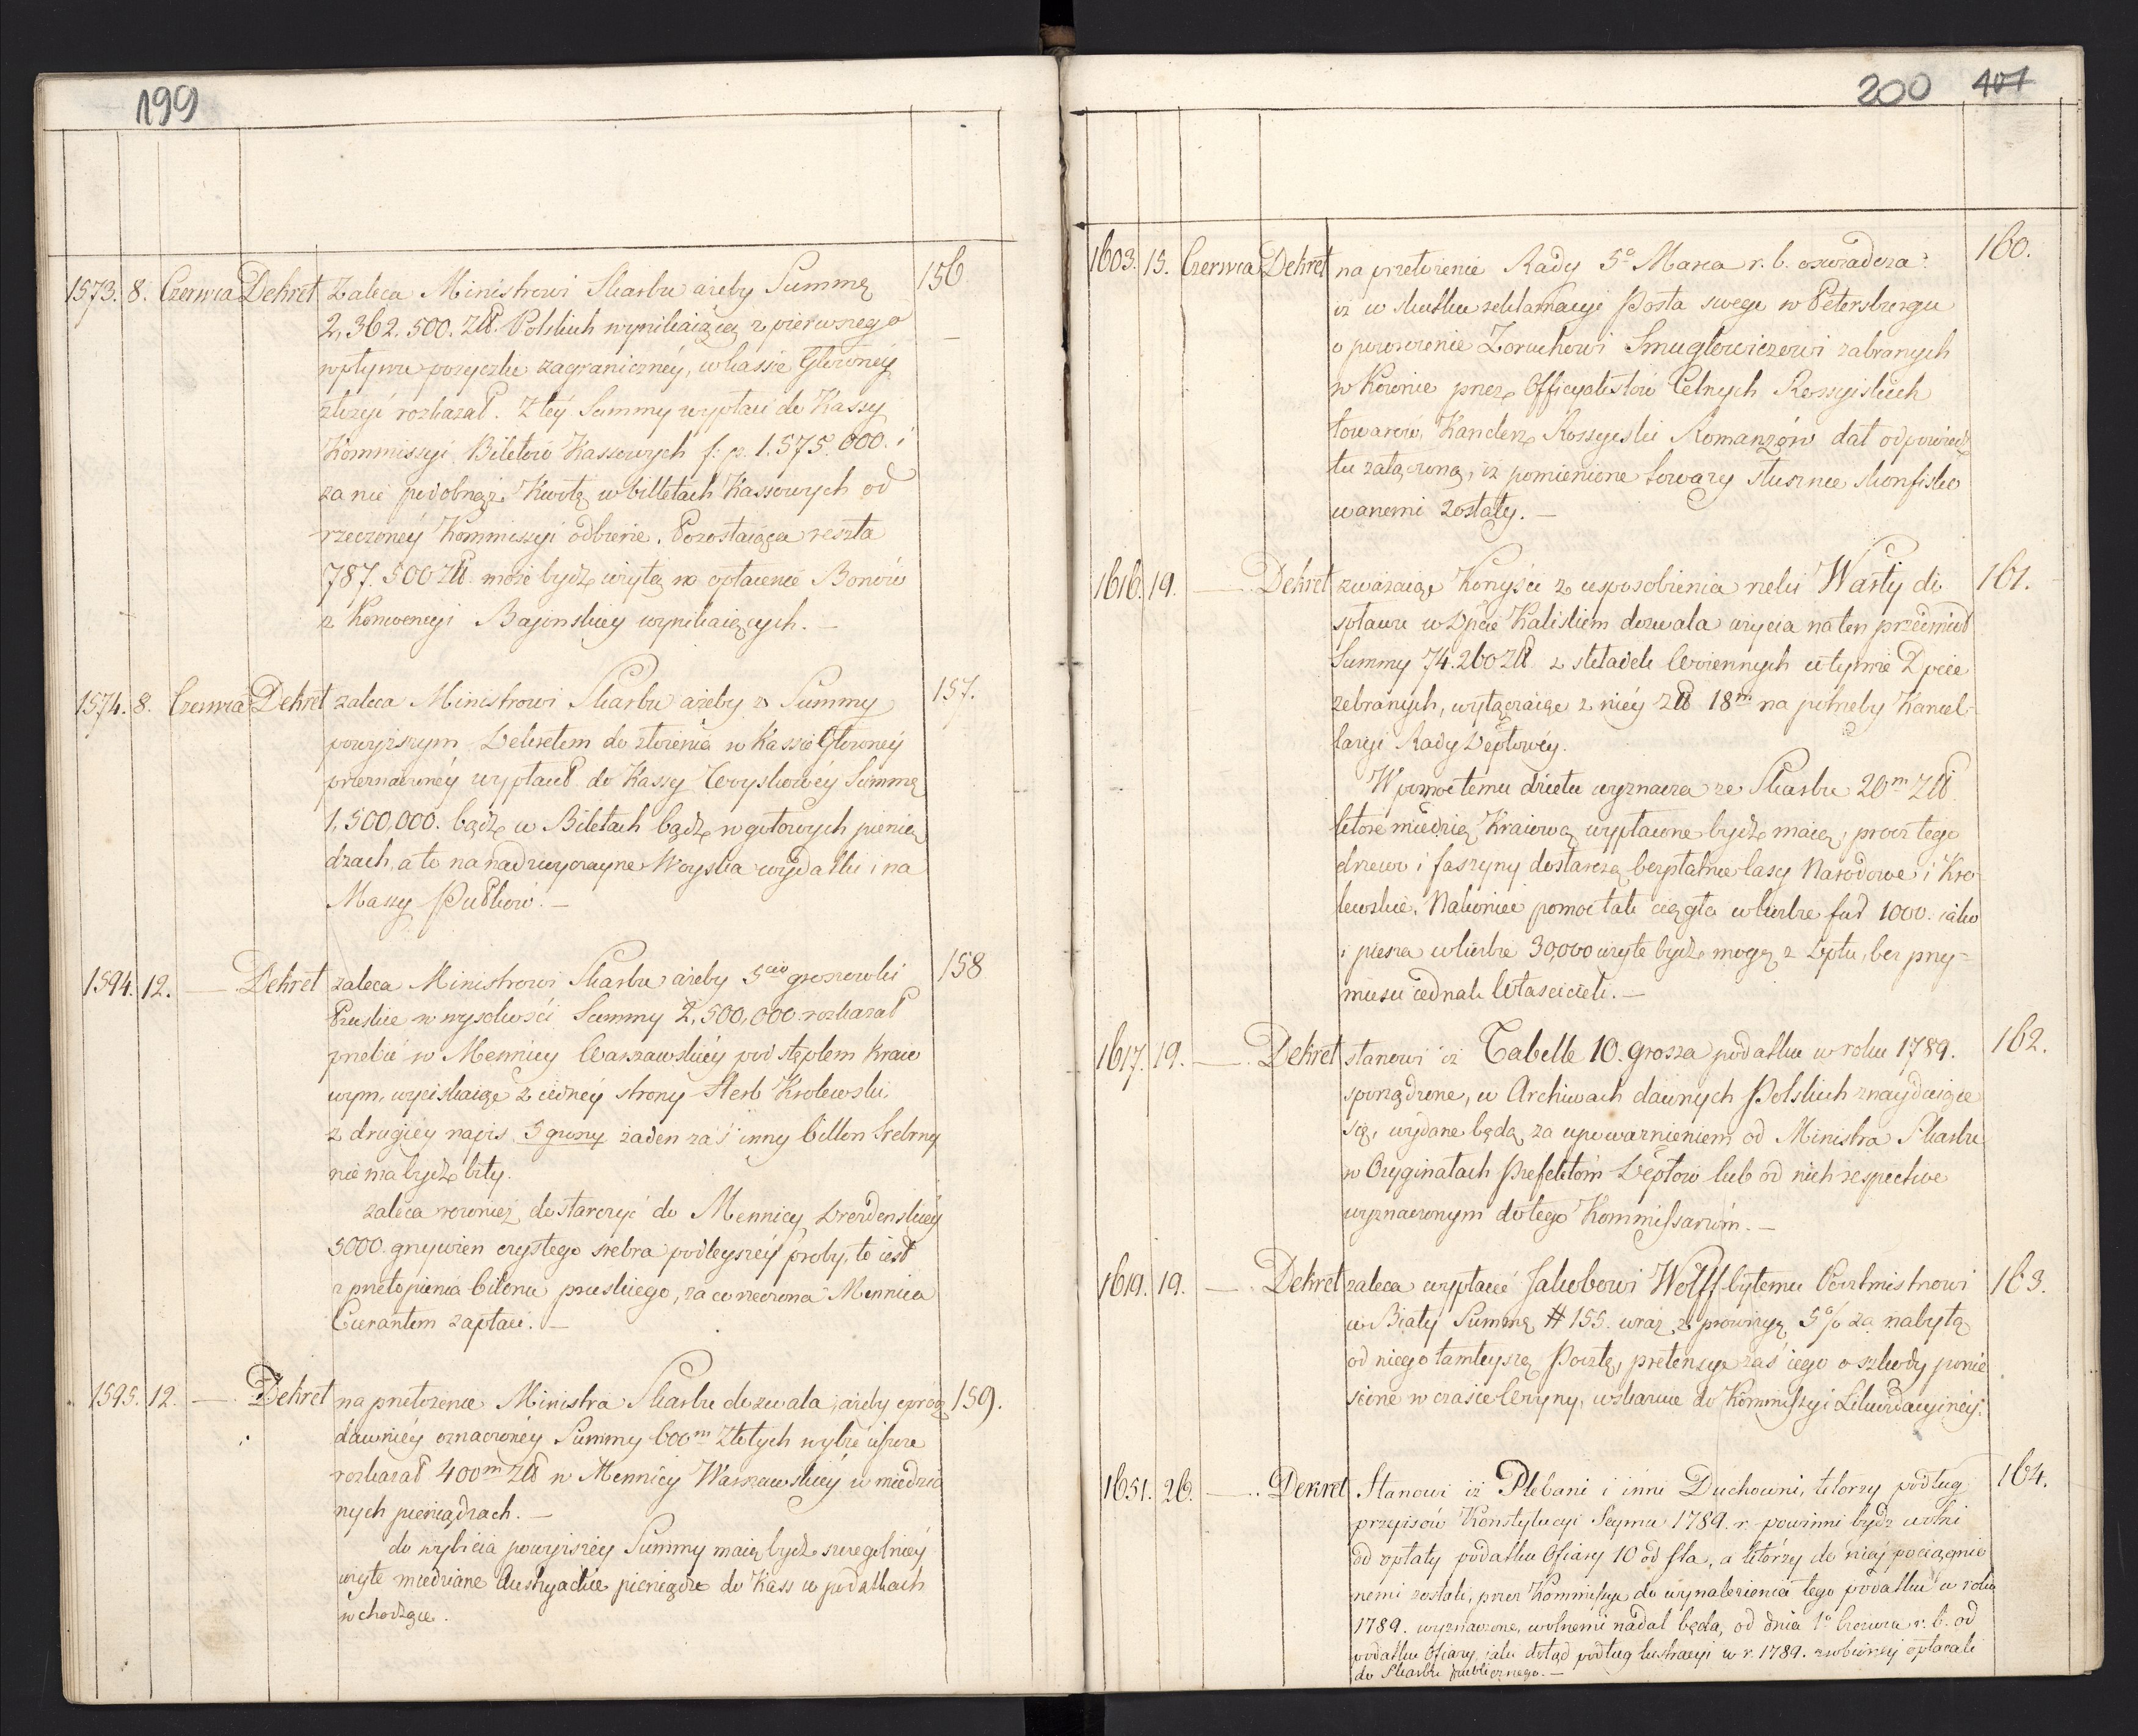 199
1573. 8. Czerwca Dekret Zaleca Ministrowi Skarbu ażeby Summę 156
2,362,500. Złł. Polskich wynikaiącą z pierwszego
wpływu pożyczki zagraniczney, w kassie Główney
złożyć rozkazał. Z tey Summy wypłaci do Kassy
Kommissyi Biletów Kassowych f: p. 1.575.000. i
za nie podobnąż Kwotę w billetach Kassowych od
rzeczoney Kommissyi odbierze. Pozostaiąca reszta
787.500 Złł. może bydź użytą na opłacenie Bonów
z Konwencyi Bajońskiey wynikaiących. —
1574. 8. Czerwca Dekret zaleca Ministrowi Skarbu ażeby z Summy 157.
powyższym Dekretem do złożenia w Kassie Główney
przeznaczoney wypłacił do Kassy Woyskowéy Summę
1,500,000. bądź w Biletach bądź w gotowych pienią
dzach, a to na nadzwyczayne Woyska wydatki i na
Massy Pułków. —
1594. 12. — Dekret zaleca Ministrowi Skarbu ażeby 5cio groszowki 158
Pruskie w wysokości Summy 2,500,000 rozkazał
przebić w Mennicy Warszawskiéy pod stęplem Kraio
wym, wyciskaiąc z iedney strony Herb Krolewski,
z drugiey napis 5 groszy żaden zaś inny billon Srebrny
nie ma bydź bity.
zaleca rownież dostarczyć do Mennicy Drezdenskiéy
5000. grzywien czystego srebra podleyszéy próby, to iest
z przetopienia bilonu pruskiego, za co rzeczona Mennica
Curantem zapłaci. —
1595. 12. — Dekret na przełożenie Ministra Skarbu dozwala, ażeby oprócz 159.
dawniéy oznaczonéy Summy 600m Złotych wybić ieszcze
rozkazał 400m Złł w Mennicy Warszawskiéy w miedzia
nych pieniądzach. —
do wybicia powyższéy Summy maią bydź szczególniéy
użyte miedziane Austryackie pieniądze do Kass w podatkach
wchodzące.
200 407
1603. 15. Czerwca Dekret na przełożenie Rady 5o Marca r. b. oswiadcza: 160.
iż w skutku reklamacyi Posła swego w Petersburgu
o powrócenie Zoruchowi Smuglowiczowi zabranych
w Kownie przez Officyalistów Celnych Rossyiskich
towarów, Kanclerz Rossyiski Romanzów dał odpowiedź
tu załączoną, iż pomienione towary słusznie skonfisko
wanemi zostały. —
1616. 19. — Dekret zważaiąc Korzyści z usposobienia rzeki Warty do 161.
spławu w Dpcie Kaliskiem dozwala użycia na ten przedmiot
Summy 74.260 Złł. z składek Woiennych w tymże Dpcie
zebranych, wyłączaiąc z niéy Złł 18m na potrzeby Kancel-
laryi Rady Deptowéy.
W pomoc temu dziełu wyznacza ze Skarbu 20m Złł.
które miedzią Kraiową wypłacone bydź maią; procz tego
drzewo i faszyny dostarczą bezpłatnie lasy Narodowe i Kro-
lewskie. Nakoniec pomoc tak ciągła w liczbie fur 1000. iako
i piesza w liczbie 30,000 użyte bydź mogą z Dptu, bez przy-
musu iednak Właścicieli. —
1617. 19. — Dekret stanowi iż Tabelle 10. grosza podatku w roku 1789. 162.
sporządzone, w Archiwach dawnych Polskich znayduiące
się, wydane będą za upoważnieniem od Ministra Skarbu
w Oryginałach Prefektom Deptów lub od nich respective
wyznaczonym do tego Kommissarzom. —
1619. 19. — Dekret zaleca wypłacić Jakubowi Wolff byłemu Pocztmistrzowi 163.
w Biały Summę # 155. wraz z prowizyą 5% za nabytą
od niego tamteyszą Pocztę, pretensye zaś iego o szkody ponie
sione w czasie Woyny, wskazuie do Kommissyi Likwidacyinéy.
1651. 26. — Dekret Stanowi iż Plebani i inni Duchowni, którzy podług 164.
przepisów Konstytucyi Seymu 1789. r. powinni bydź wolni
od opłaty podatku Ofiary 10 od sta, a którzy do niéy pociągnie
nemi zostali, przez Kommissye do wynalezienia tego podatku w roku
1789. wyznaczone, wolnemi nadal będą, od dnia 1o Czerwca r. b. od
podatku Ofiary, iaki dotąd podług lustracyi w r. 1789. zrobionéy opłacali
do Skarbu publicznego. —